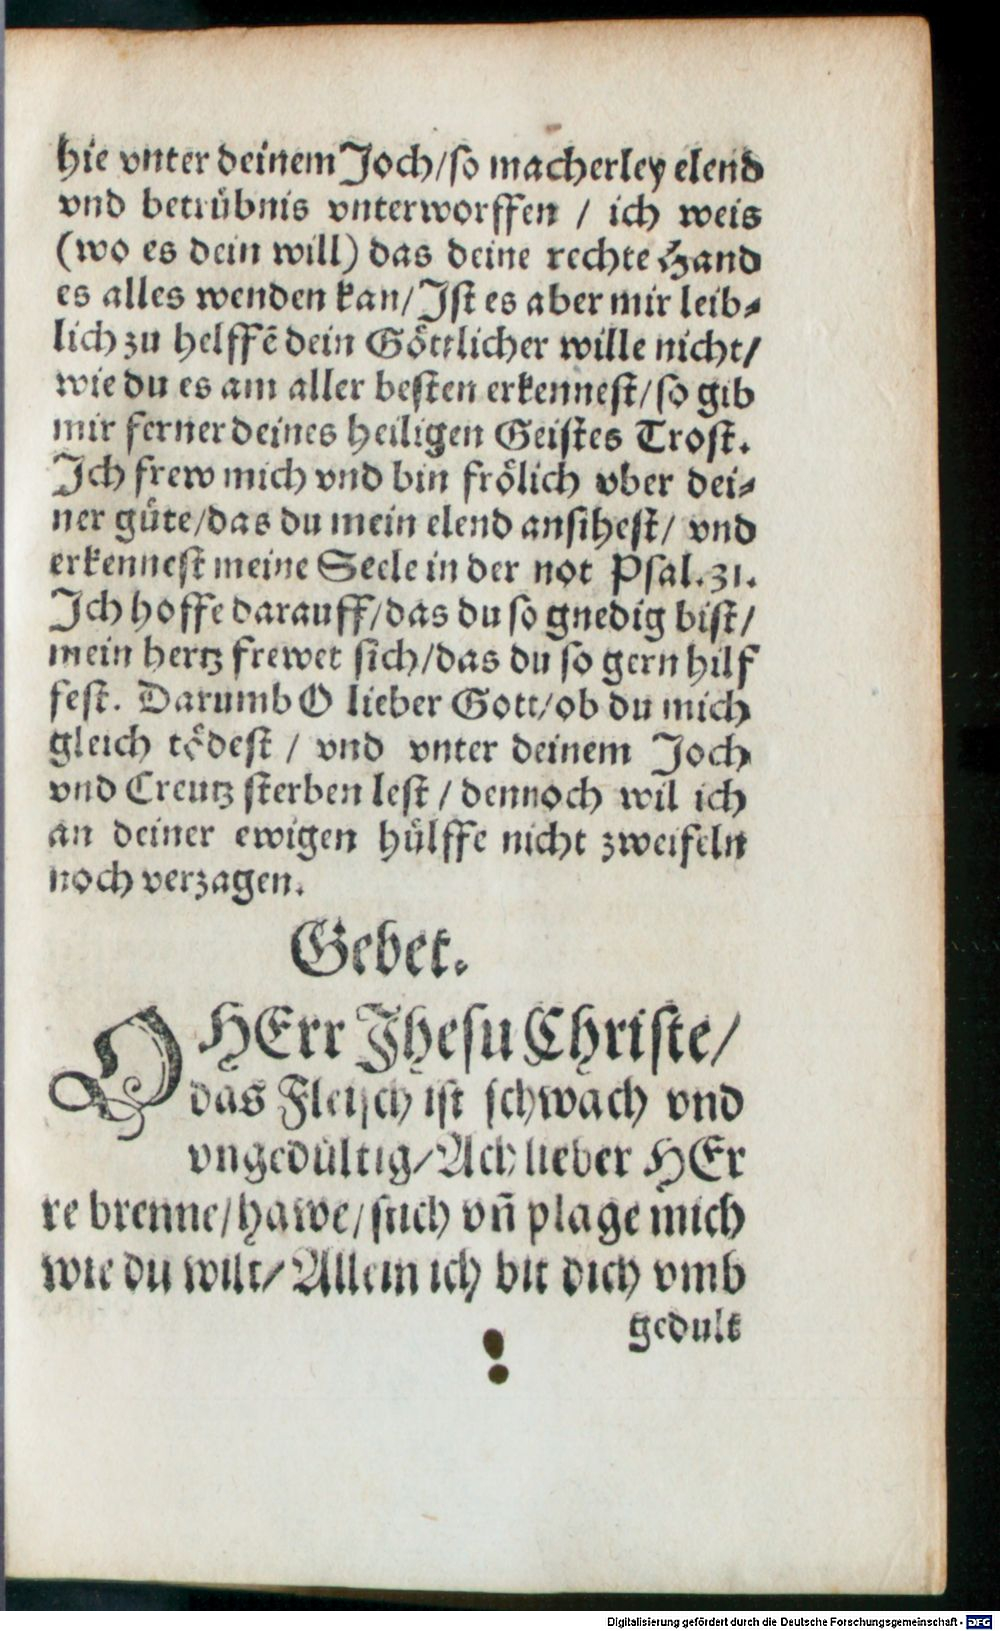 hie vnter deinem Joch/so macherley elend
vnd betrübnis vnterworffen / ich weis
(wo es dein will) das deine rechte Hand
es alles wenden kan/Jst es aber mir leib-
lich zu helffē dein Göttlicher wille nicht/
wie du es am aller besten erkennest/so gib
mir ferner deines heiligen Geistes Trost.
Jch frew mich vnd bin frölich vber dei-
ner güte/das du mein elend ansihest/ vnd
erkennest meine Seele in der not Psal.31.
Jch hoffe darauff/das du so gnedig bist/
mein hertz frewet sich/das du so gern hilf
fest. Darumb O lieber Gott/ob du mich
gleich tödest / vnd vnter deinem Joch
vnd Creutz sterben lest / dennoch wil ich
an deiner ewigen hülffe nicht zweifeln
noch verzagen.
Gebet.
O HErr Jhesu Christe/
das Fleisch ist schwach vnd
vngedültig/Ach lieber HEr
re brenne/hawe/stich vñ plage mich
wie du wilt/Allein ich bit dich vmb
gedult
Digitalisierung gefördert durch die Deutsche Forschungsgemeinschaft - DFG